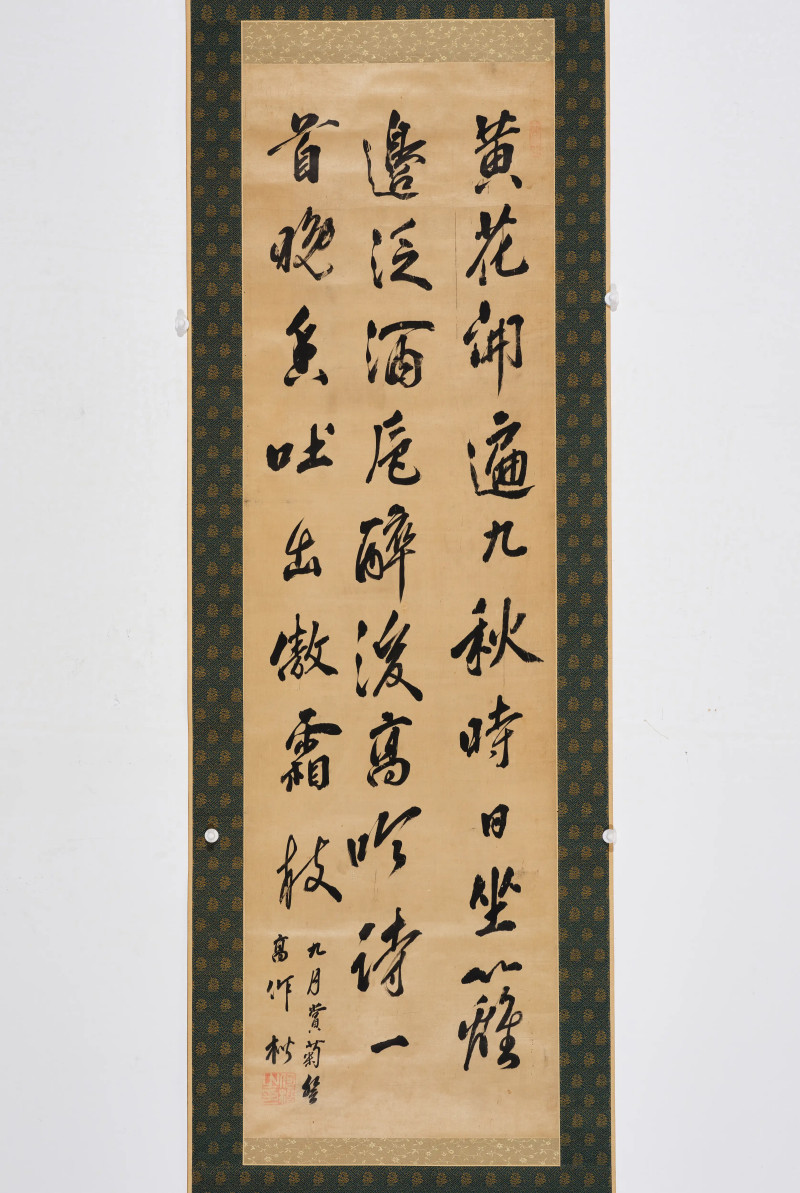 黄花開遍九秋時日坐籬
邊泛酒卮醉後高吟詩一
首晚香吐出傲霜枝
九月賞菊
高作楷